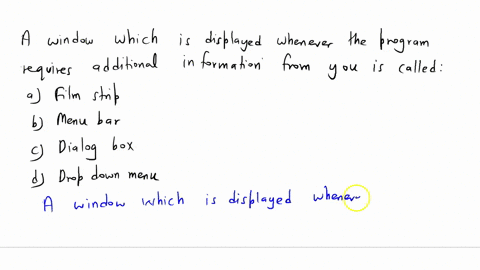 A window which is displayed whenever the program
requires additional information from you is called:
a) Film strip
b) Menu bar
c) Dialog box
d) Drop down menu
A window which is displayed whenever